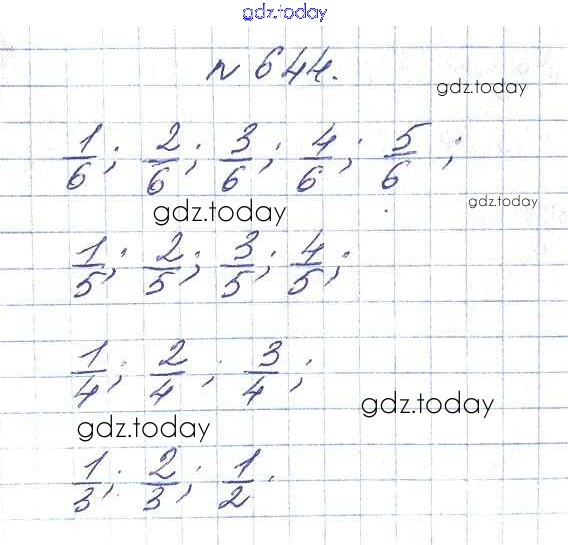 gdz.today
№ 644.
gdz.today
1/6; 2/6; 3/6; 4/6; 5/6;
gdz.today
gdz.today
1/5; 2/5; 3/5; 4/5;
1/4; 2/4; 3/4;
gdz.today
gdz.today
1/3; 2/3; 1/2.